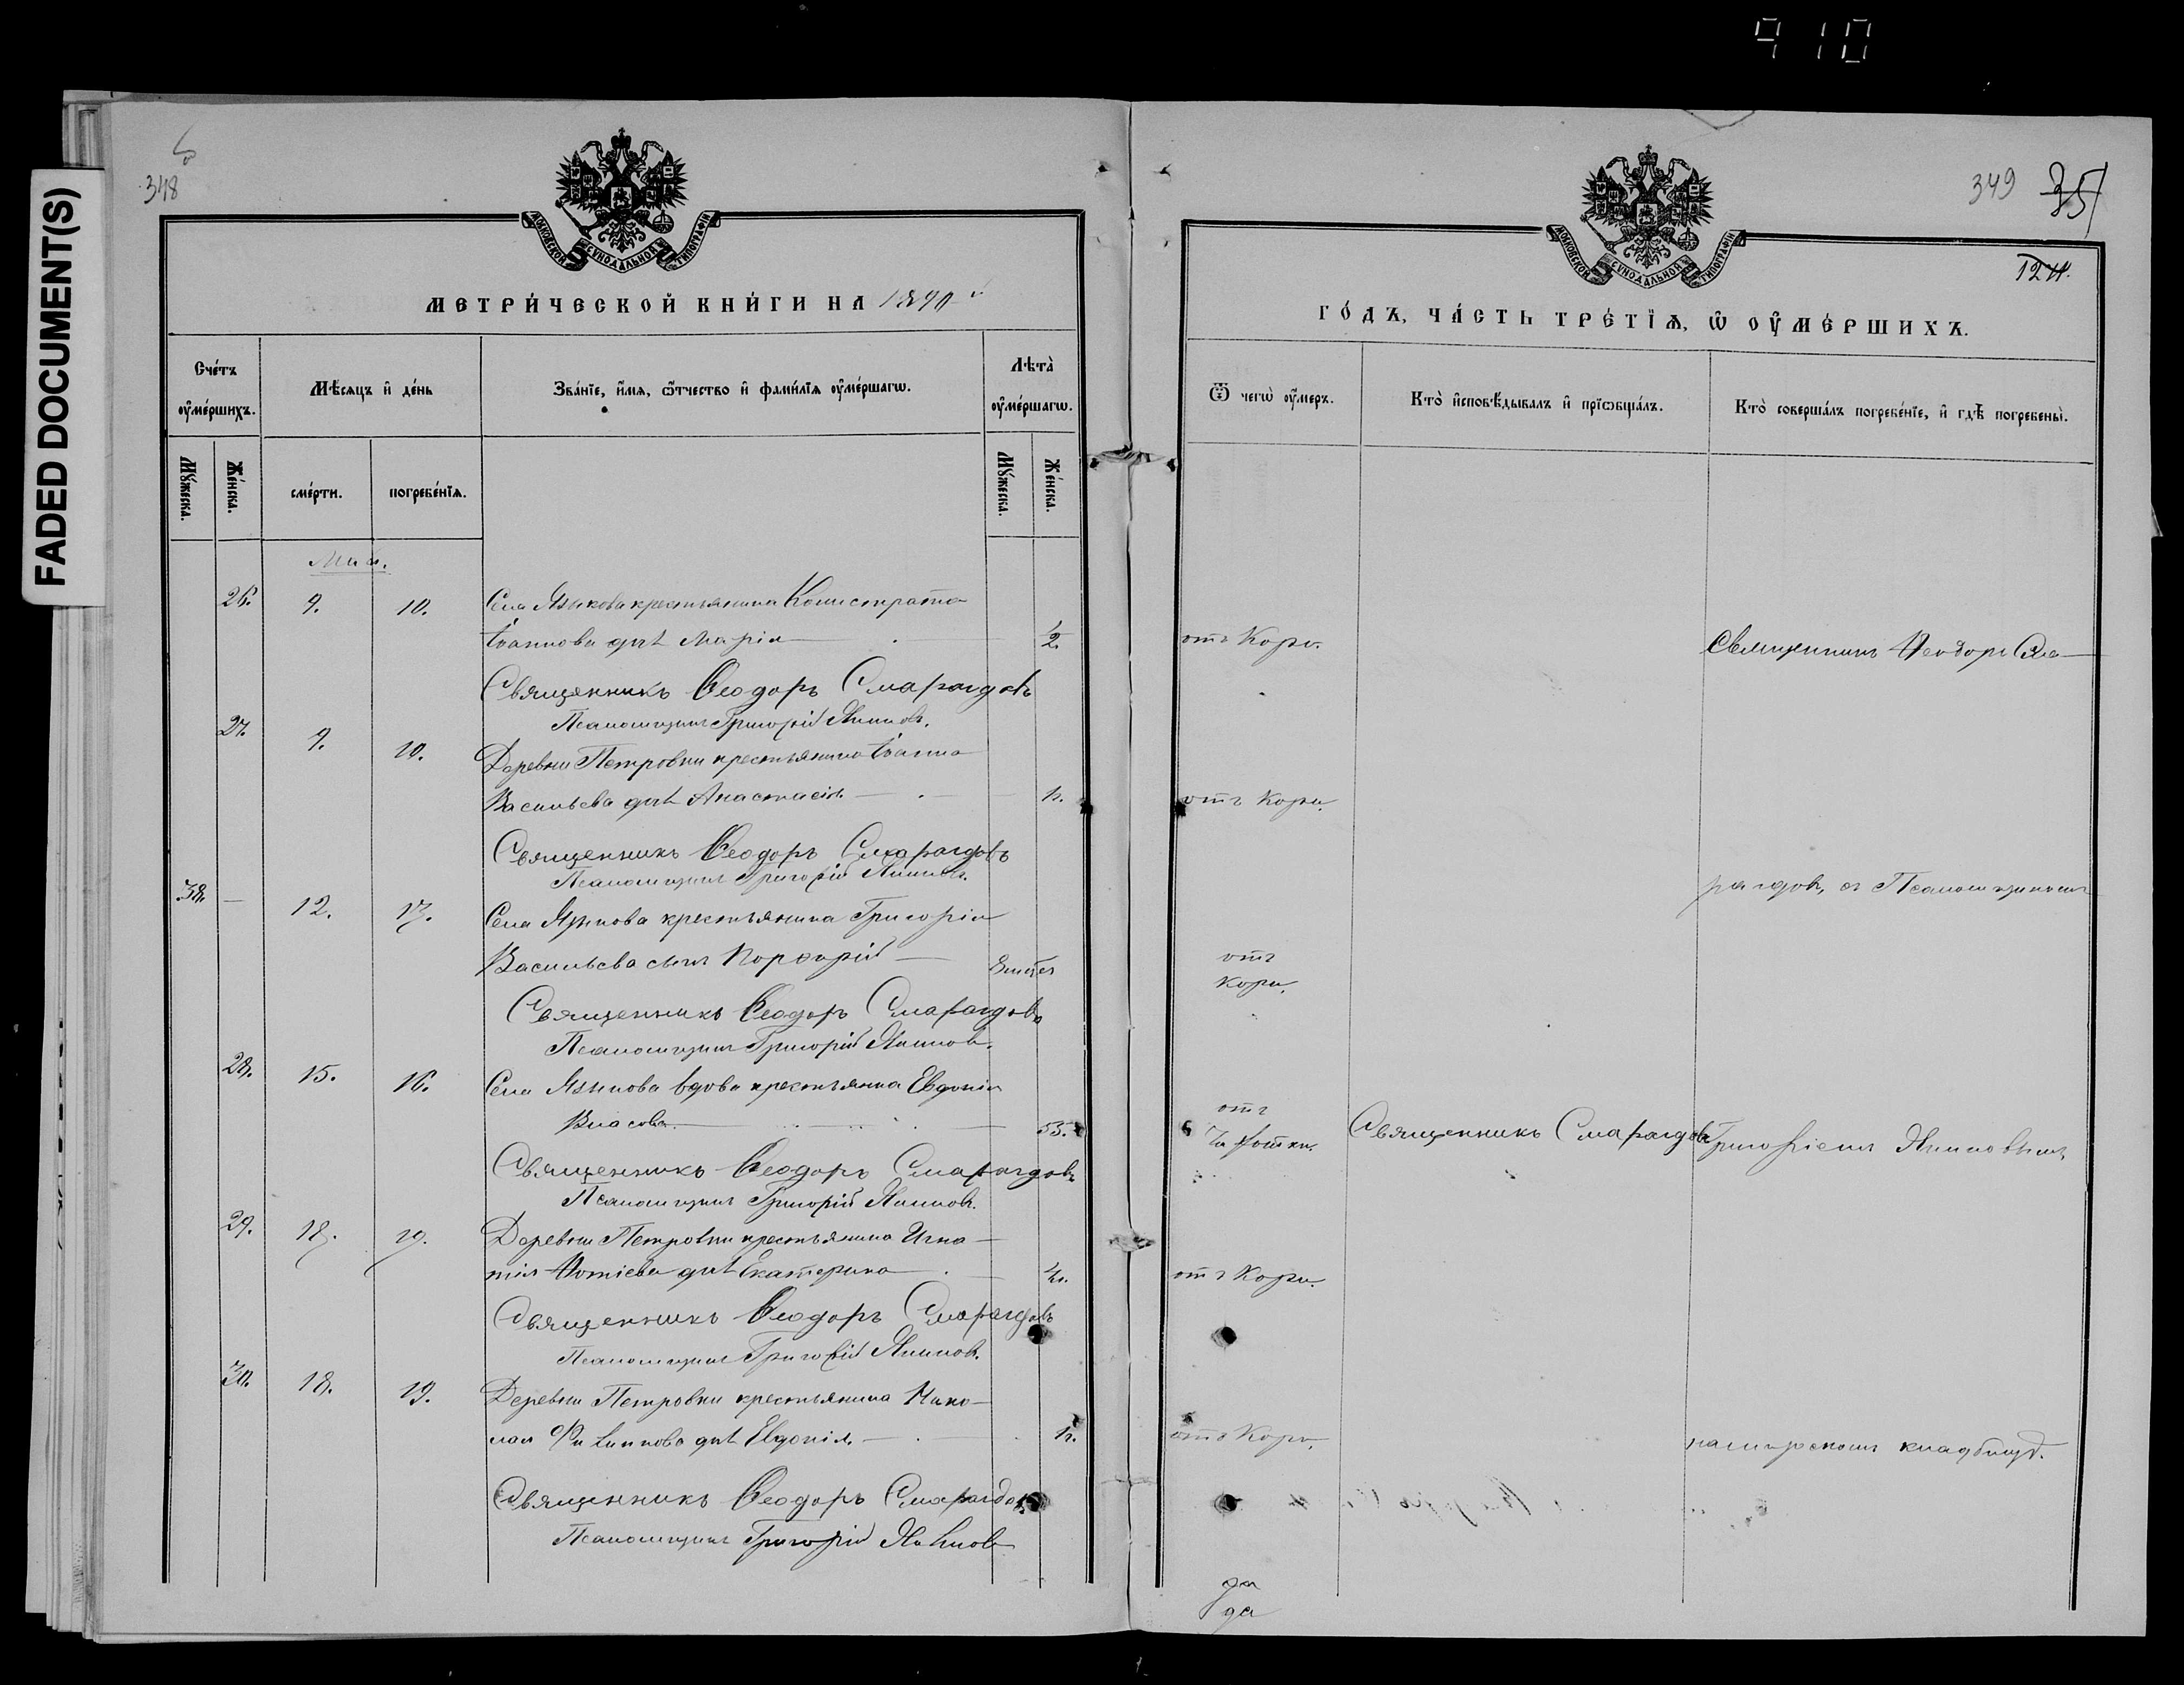 910
FADED DOCUMENT(S)
348
МОСКОВСКОЙ СѴНОДАЛЬНОЙ ТИПОГРАФІИ
МЕТРИ́ЧЕСКОЙ КНИ́ГИ НА 1890 й
Сче́тъ ѹ҆ме́ршихъ.
Мѣ́сяцъ и҆ де́нь
Зва́нїе, и҆́мя, ѻ҆́тчество и҆ фами́лїя ѹ҆ме́ршагѡ.
Лѣта̀ ѹ҆ме́ршагѡ.
Мꙋ́жеска.
Же́нска.
сме́рти.
погребе́нїѧ.
Мꙋ́жеска.
Же́нска.
Май.
26. 9. 10. Села Языкова крестьянина Калистрата
Іоаннова дочь Марія ½
Священникъ Ѳеодоръ Смарагдовъ
Псаломщикъ Григорій
27. 9. 10. Деревни Петровки крестьянина Іоанна
Васильева дочь Анастасія
Священникъ Ѳеодоръ Смарагдовъ
Псаломщикъ Григорій
38. — 12. 13. Села Языкова крестьянина Григорія
Васильева сынъ Порфирій —
Священникъ Ѳеодоръ Смарагдовъ
Псаломщикъ Григорій
28. 15. 16. Села Языкова вдова крестьянка Евдокія
Власова 55.
Священникъ Ѳеодоръ Смарагдовъ
Псаломщикъ Григорій
29. 18. Деревни Петровки крестьянина Игна-
тія Фотіева дочь Екатерина
Священникъ Ѳеодоръ Смарагдовъ
Псаломщикъ Григорій
30. 18. 19. Деревни Петровки крестьянина Нико-
лая Филиппова дочь Евдокія
Священникъ Ѳеодоръ Смарагдовъ
Псаломщикъ Григорій
349 35
МОСКОВСКОЙ СѴНОДАЛЬНОЙ ТИПОГРАФІИ
124.
ГО́ДЪ, ЧА́СТЬ ТРЕ́ТЇѦ, Ѡ҆ ОУ҆МЕ́РШИХЪ.
Ѿ чегѡ̀ ѹ҆́меръ.
Кто̀ и҆сповѣ́дывалъ и҆ прїѡбща́лъ.
Кто̀ соверша́лъ погребе́нїе, и҆ гдѣ̀ погребены̀.
отъ Кори.
Священникъ Ѳеодоръ Сма-
отъ Кори.
рагдовъ, съ Псаломщикомъ
отъ
Кори.
отъ
Чахотки.
Священникъ Смарагдовъ
Григоріемъ
отъ Кори.
отъ Кори.
кладбищѣ.
да
да